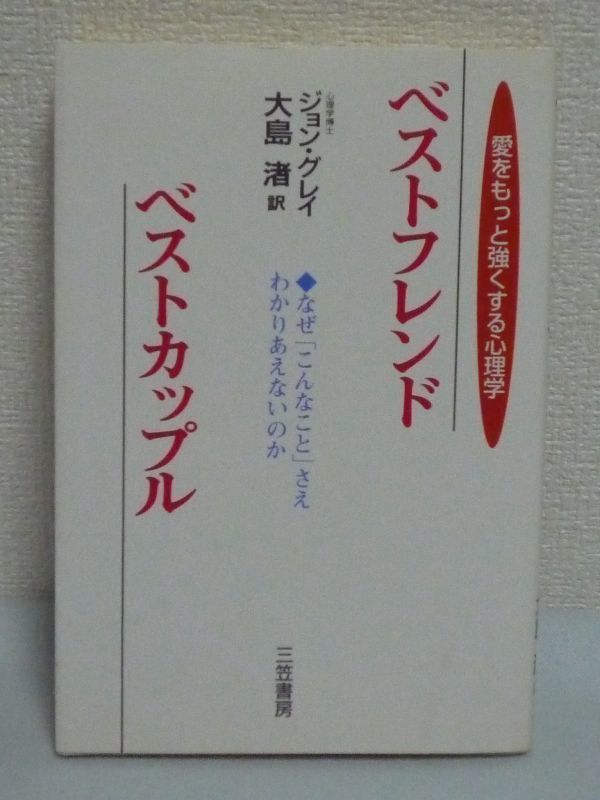 愛をもっと強くする心理学
ベストフレンド
心理学博士
ジョン・グレイ
大島 渚 訳
◆なぜ「こんなこと」さえ
わかりあえないのか
ベストカップル
三笠書房